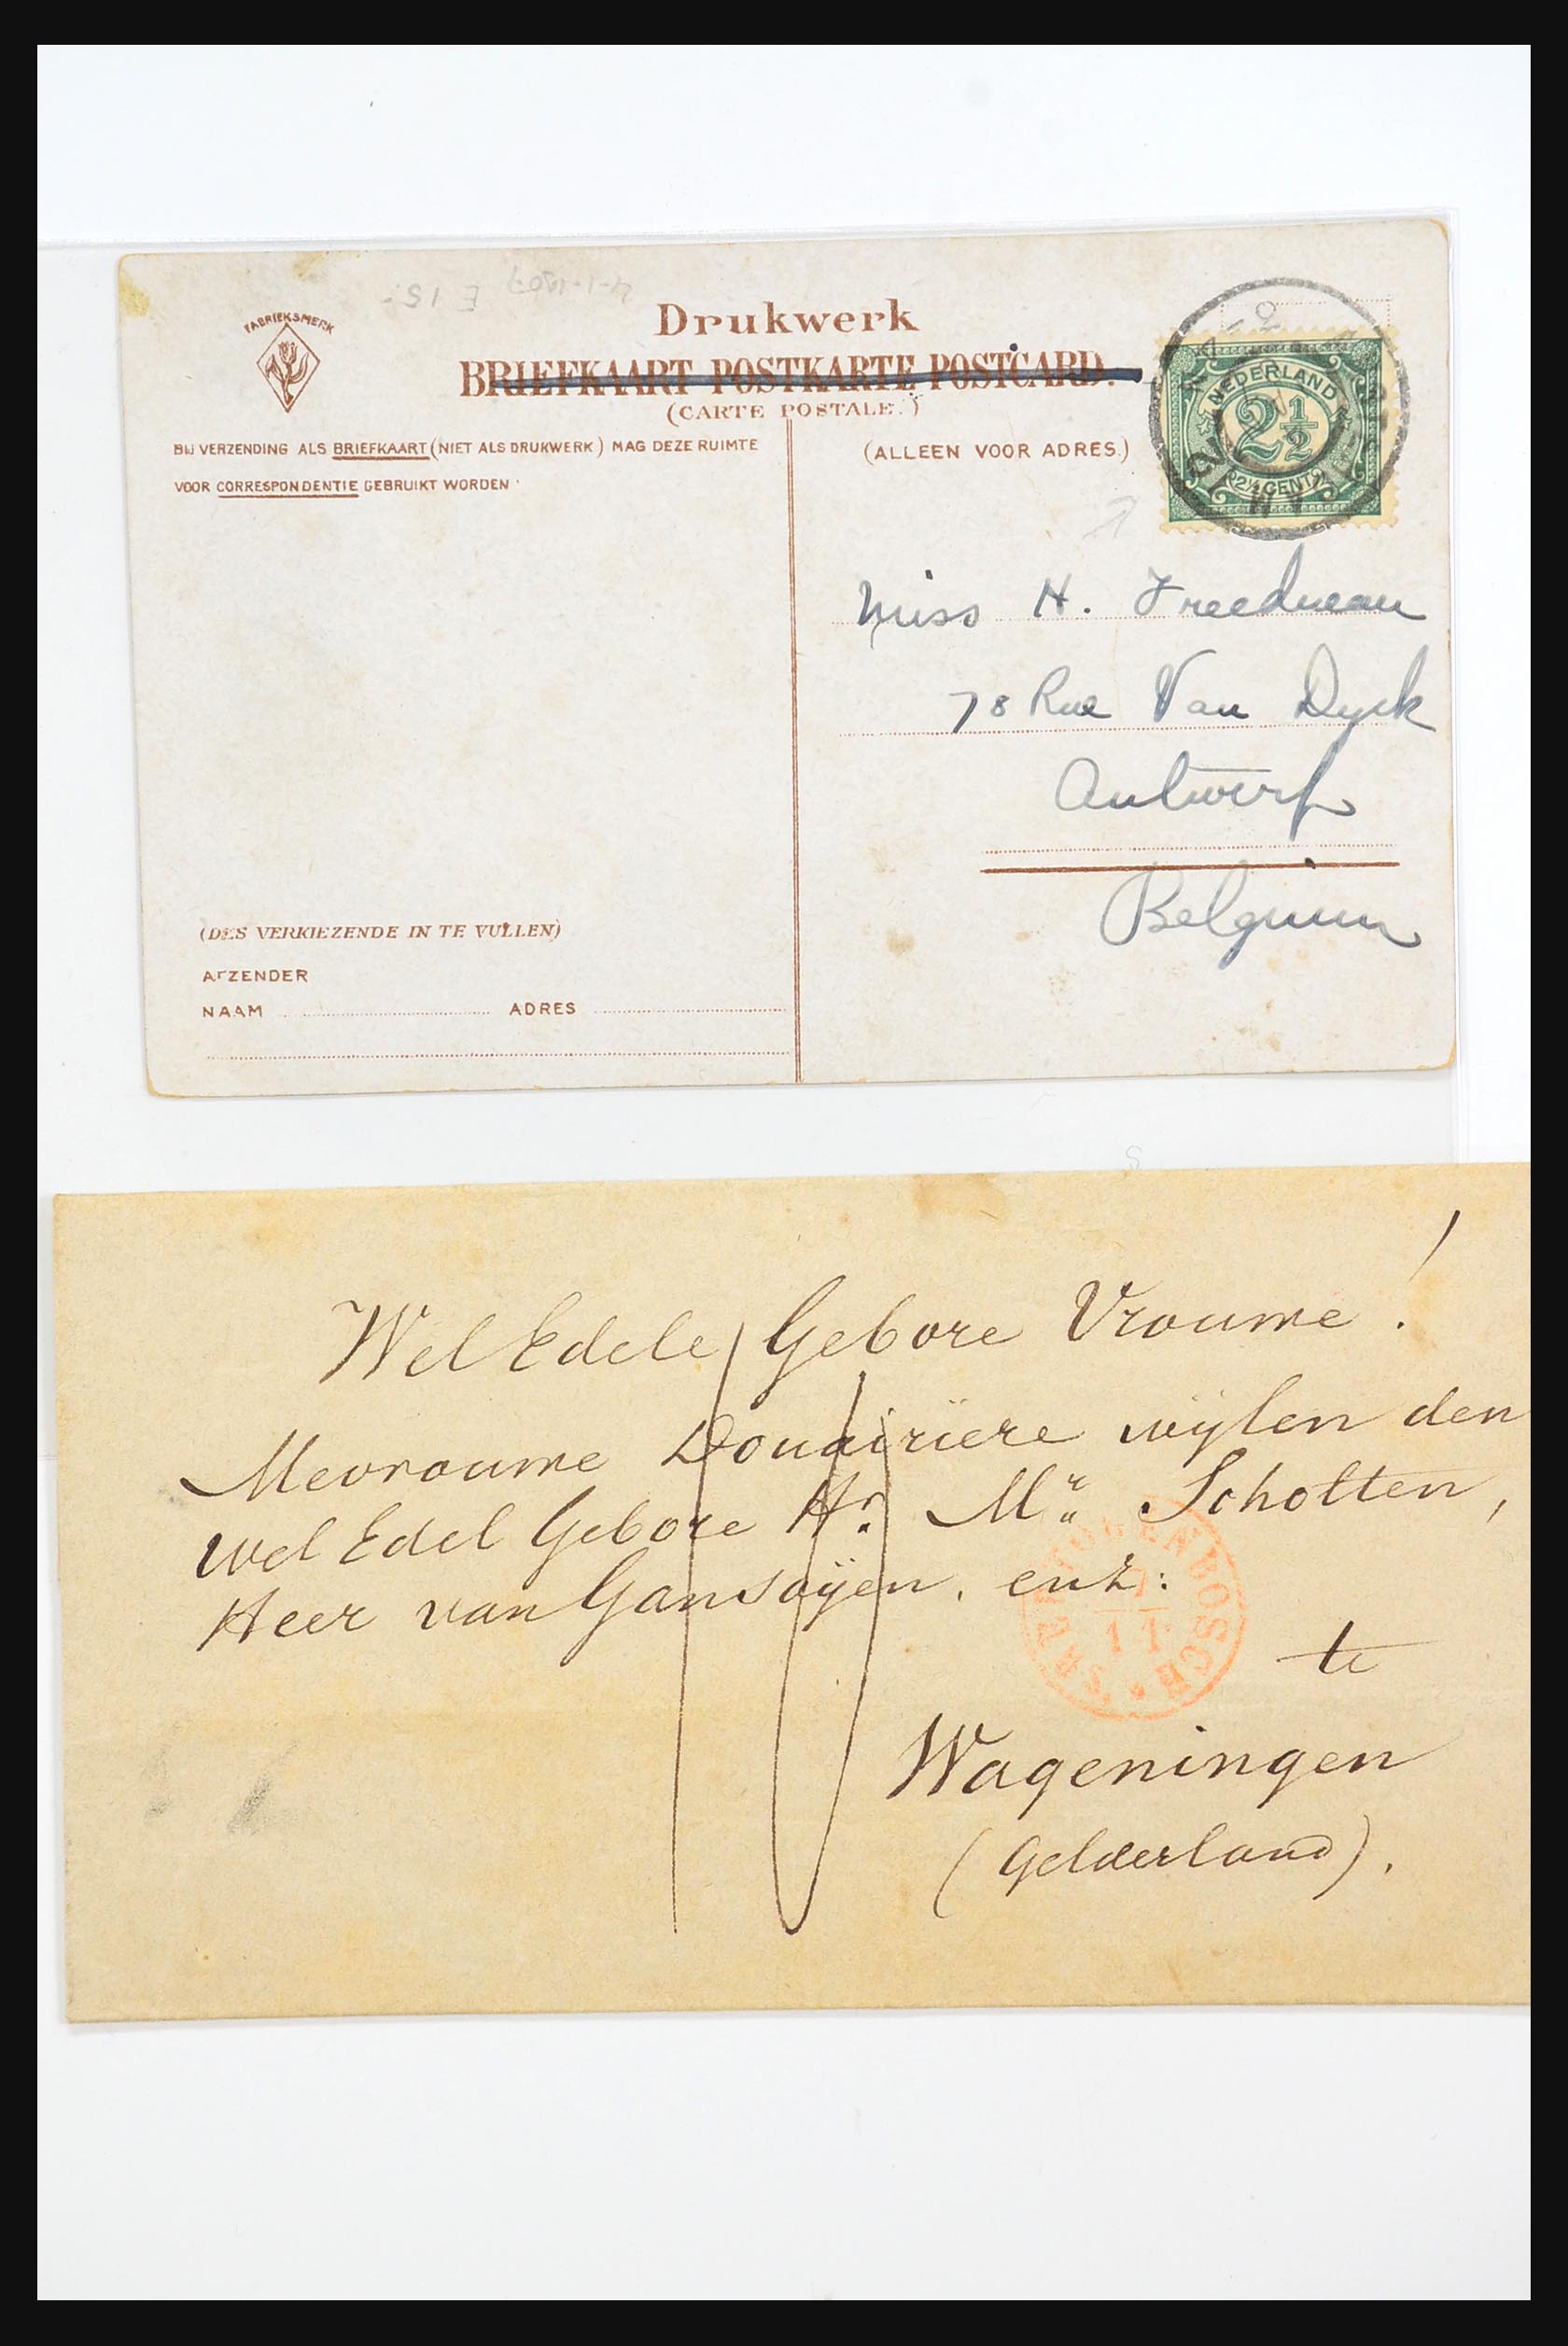 E 15-
4-1-1907
FABRIEKSMERK
Drukwerk
BRIEFKAART POSTKARTE POSTCARD.
(CARTE POSTALE.)
BIJ VERZENDING ALS BRIEFKAART (NIET ALS DRUKWERK) MAG DEZE RUIMTE
VOOR CORRESPONDENTIE GEBRUIKT WORDEN
(ALLEEN VOOR ADRES.)
NEDERLAND
2½
2½ CENT
Miss H. Freedman
78 Rue Van Dyck
Antwerp
Belgium
(DES VERKIEZENDE IN TE VULLEN)
AFZENDER
NAAM ADRES
Wel Edele Gebore Vrouwe!
Mevrouwe Douairiere wijlen den
wel Edel Gebore Hr. Mr. Scholten,
Heer van Gansoÿen, enz:
te
Wageningen
(Gelderland).
10
'S HERTOGENBOSCH
11